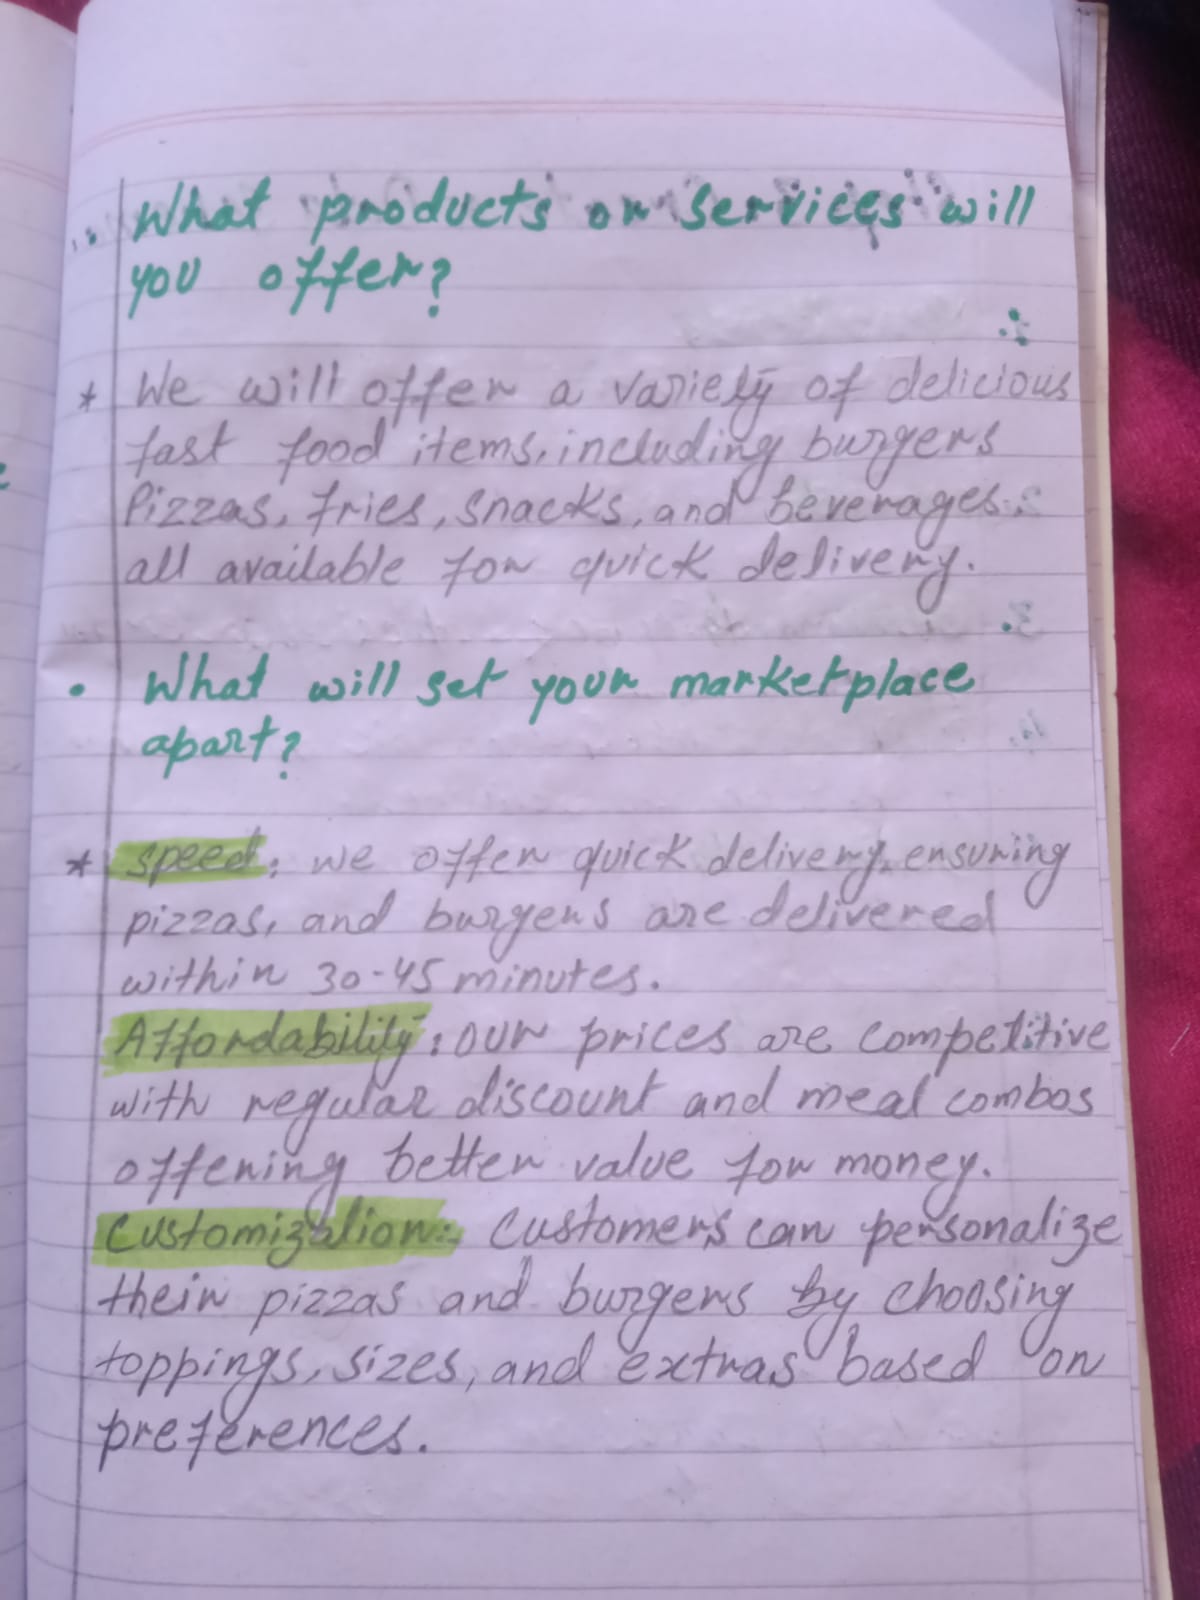 • What products or services will
you offer?
* We will offer a variety of delicious
fast food items, including burgers
Pizzas, fries, snacks, and beverages.
all available for quick delivery.
• What will set your marketplace
apart?
* Speed: we offer quick delivery, ensuring
pizzas, and burgers are delivered
within 30-45 minutes.
Affordability: our prices are competitive
with regular discount and meal combos
offering better value for money.
Customization: Customers can personalize
their pizzas and burgers by choosing
toppings, sizes, and extras based on
preferences.